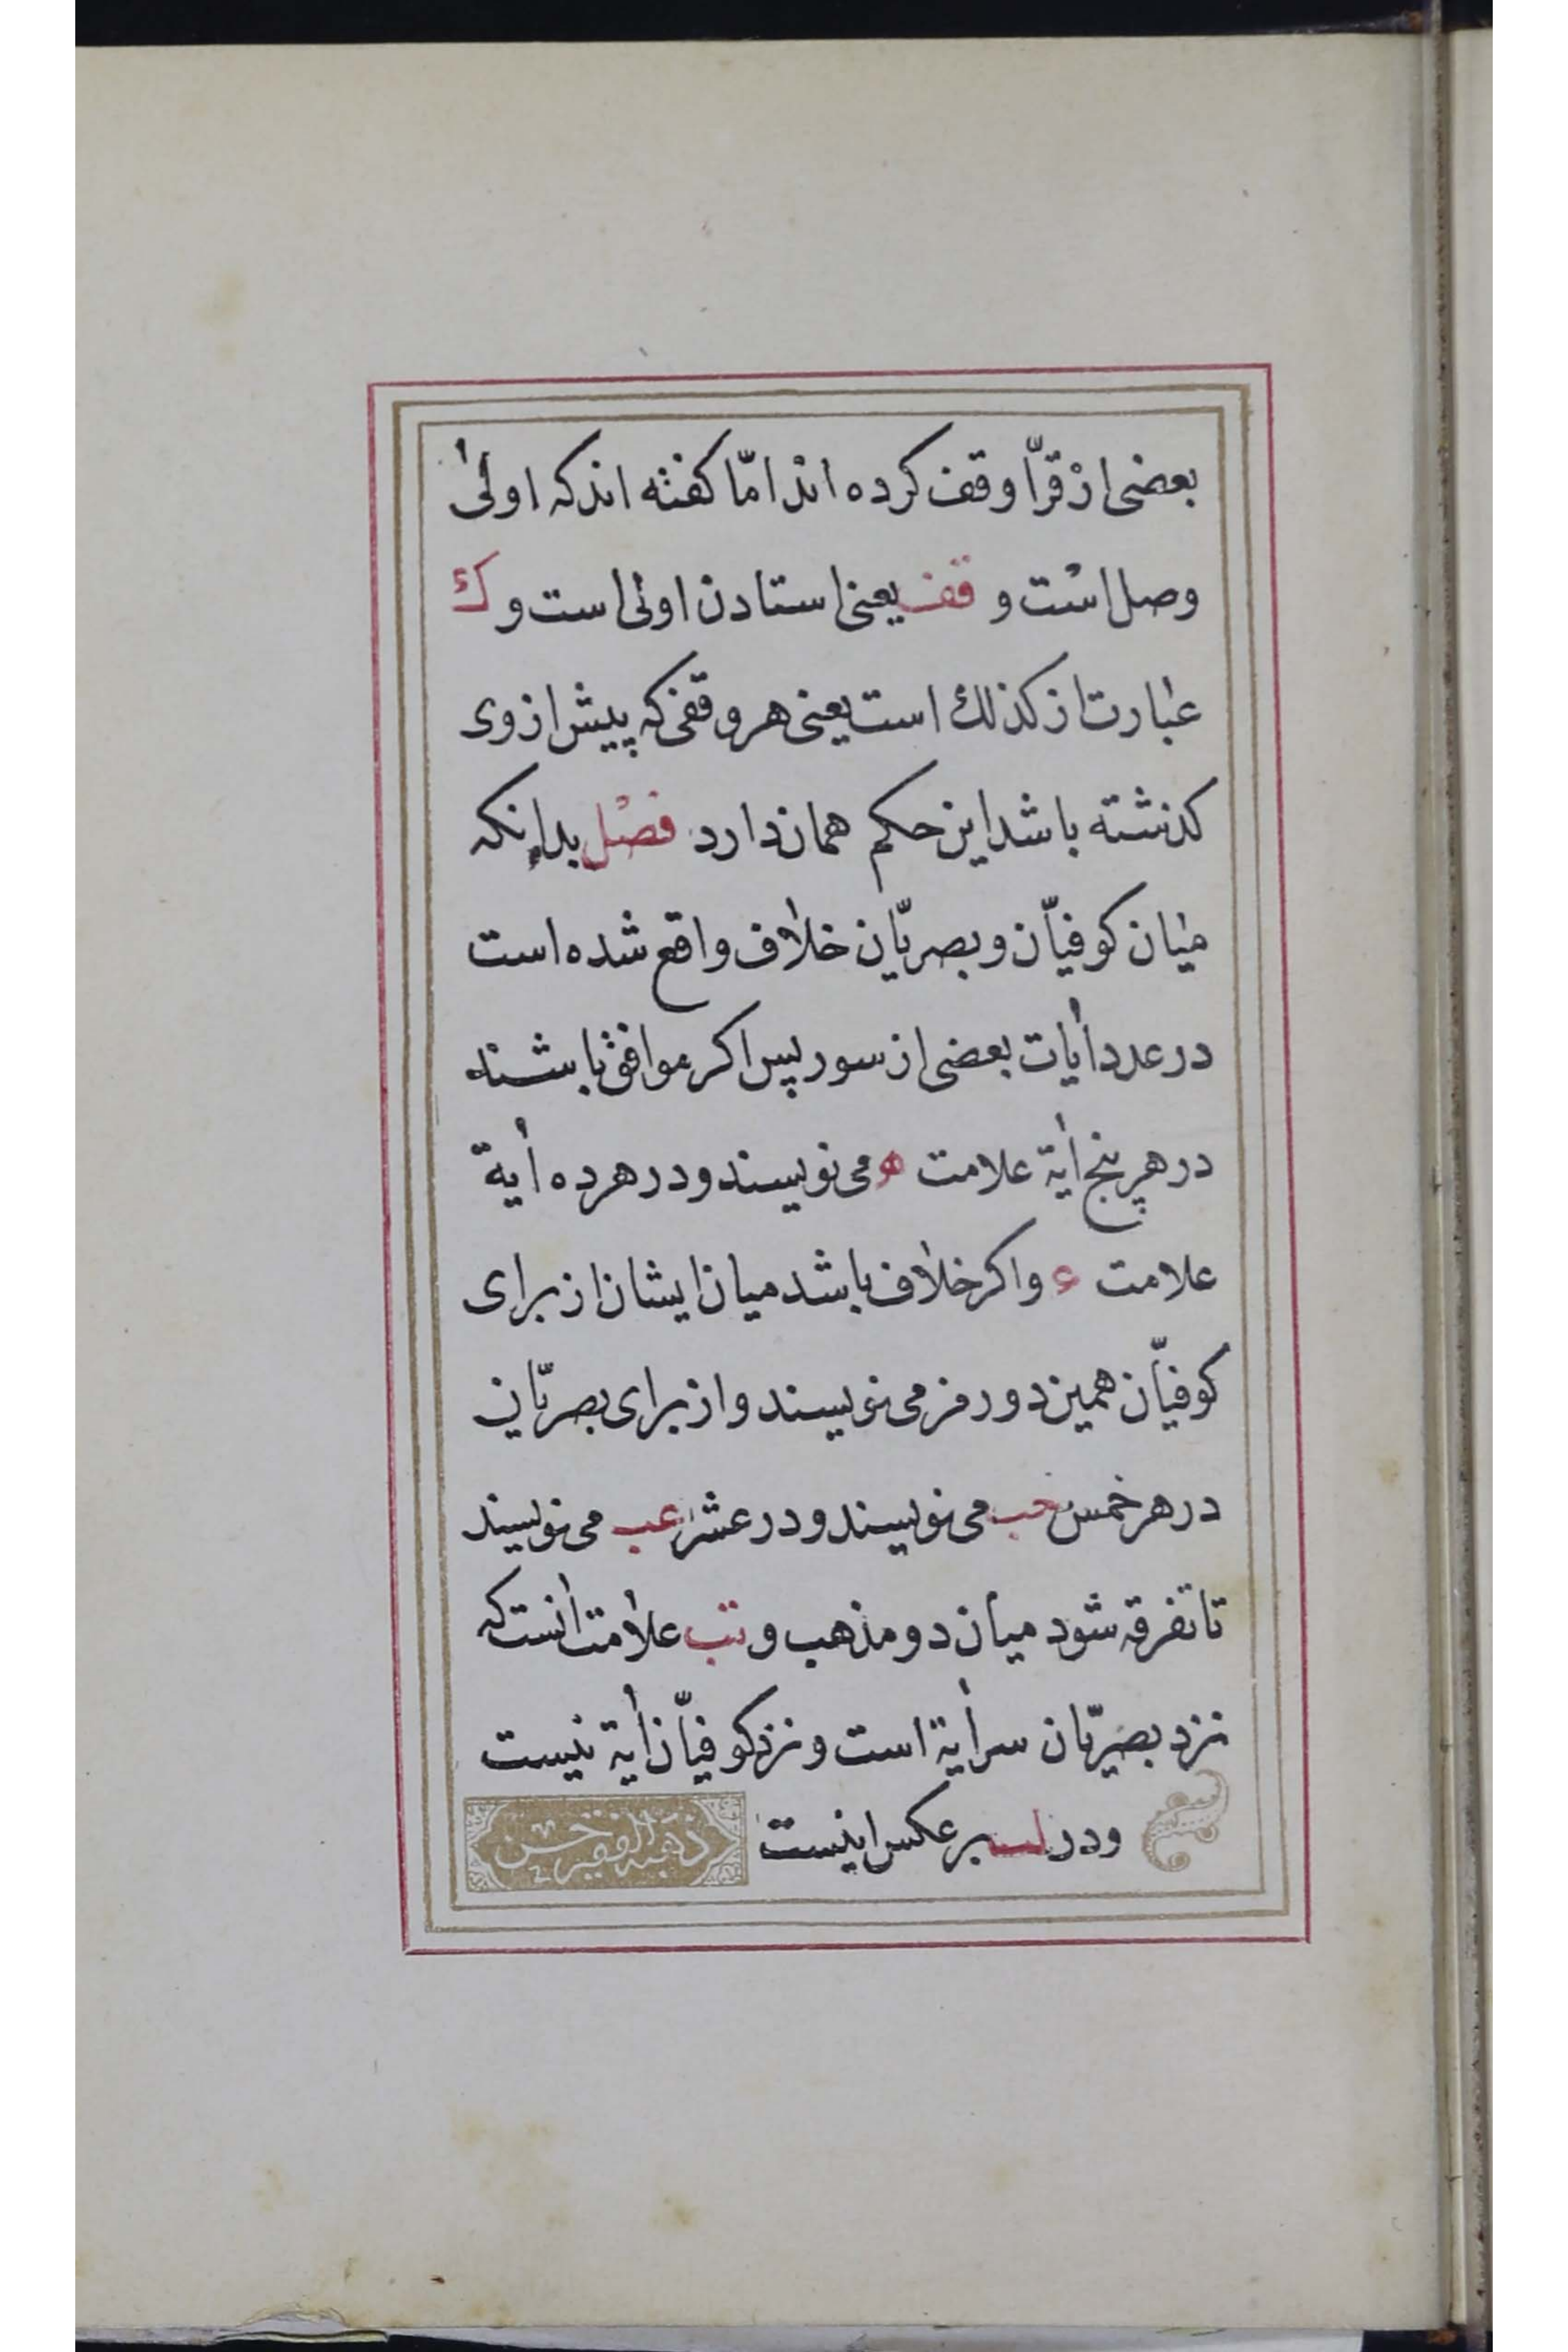 بعضی از قرّا وقف کرده اند امّا کفته اند که اولیٰ
وصل است و قف یعنی استادن اولی است و ك
عبارت از کذلك است یعنی هر وقفی که پیش از وی
کذشته باشد این حکم همان دارد فصل بدانکه
میان کوفیّان و بصریّان خلاف واقع شده است
در عدد أیات بعضی از سور پس اکر موافق باشند
در هر پنج أیة علامت ه می نویسند و در هر ده أیة
علامت ء و اکر خلاف باشد میان ایشان از برای
کوفیّان همین دو رمز می نویسند و از برای بصریّان
در هر خمس خب می نویسند و در عشر عب می نویسند
تا تفرقه شود میان دو مذهب و تب علامت أنست که
نزد بصریّان سر أیة است و نزد کوفیّان أیة نیست
و در لب بر عکس اینست
ذهبه الفقیر حسن